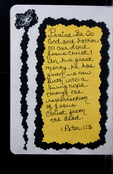 Praise be to
God and Father
to our Lord
Jesus Christ!
In his great
mercy he has
given us new
birth into a
living hope
through the
resurrection
of Jesus
Christ from
the dead
1 Peter 1:3